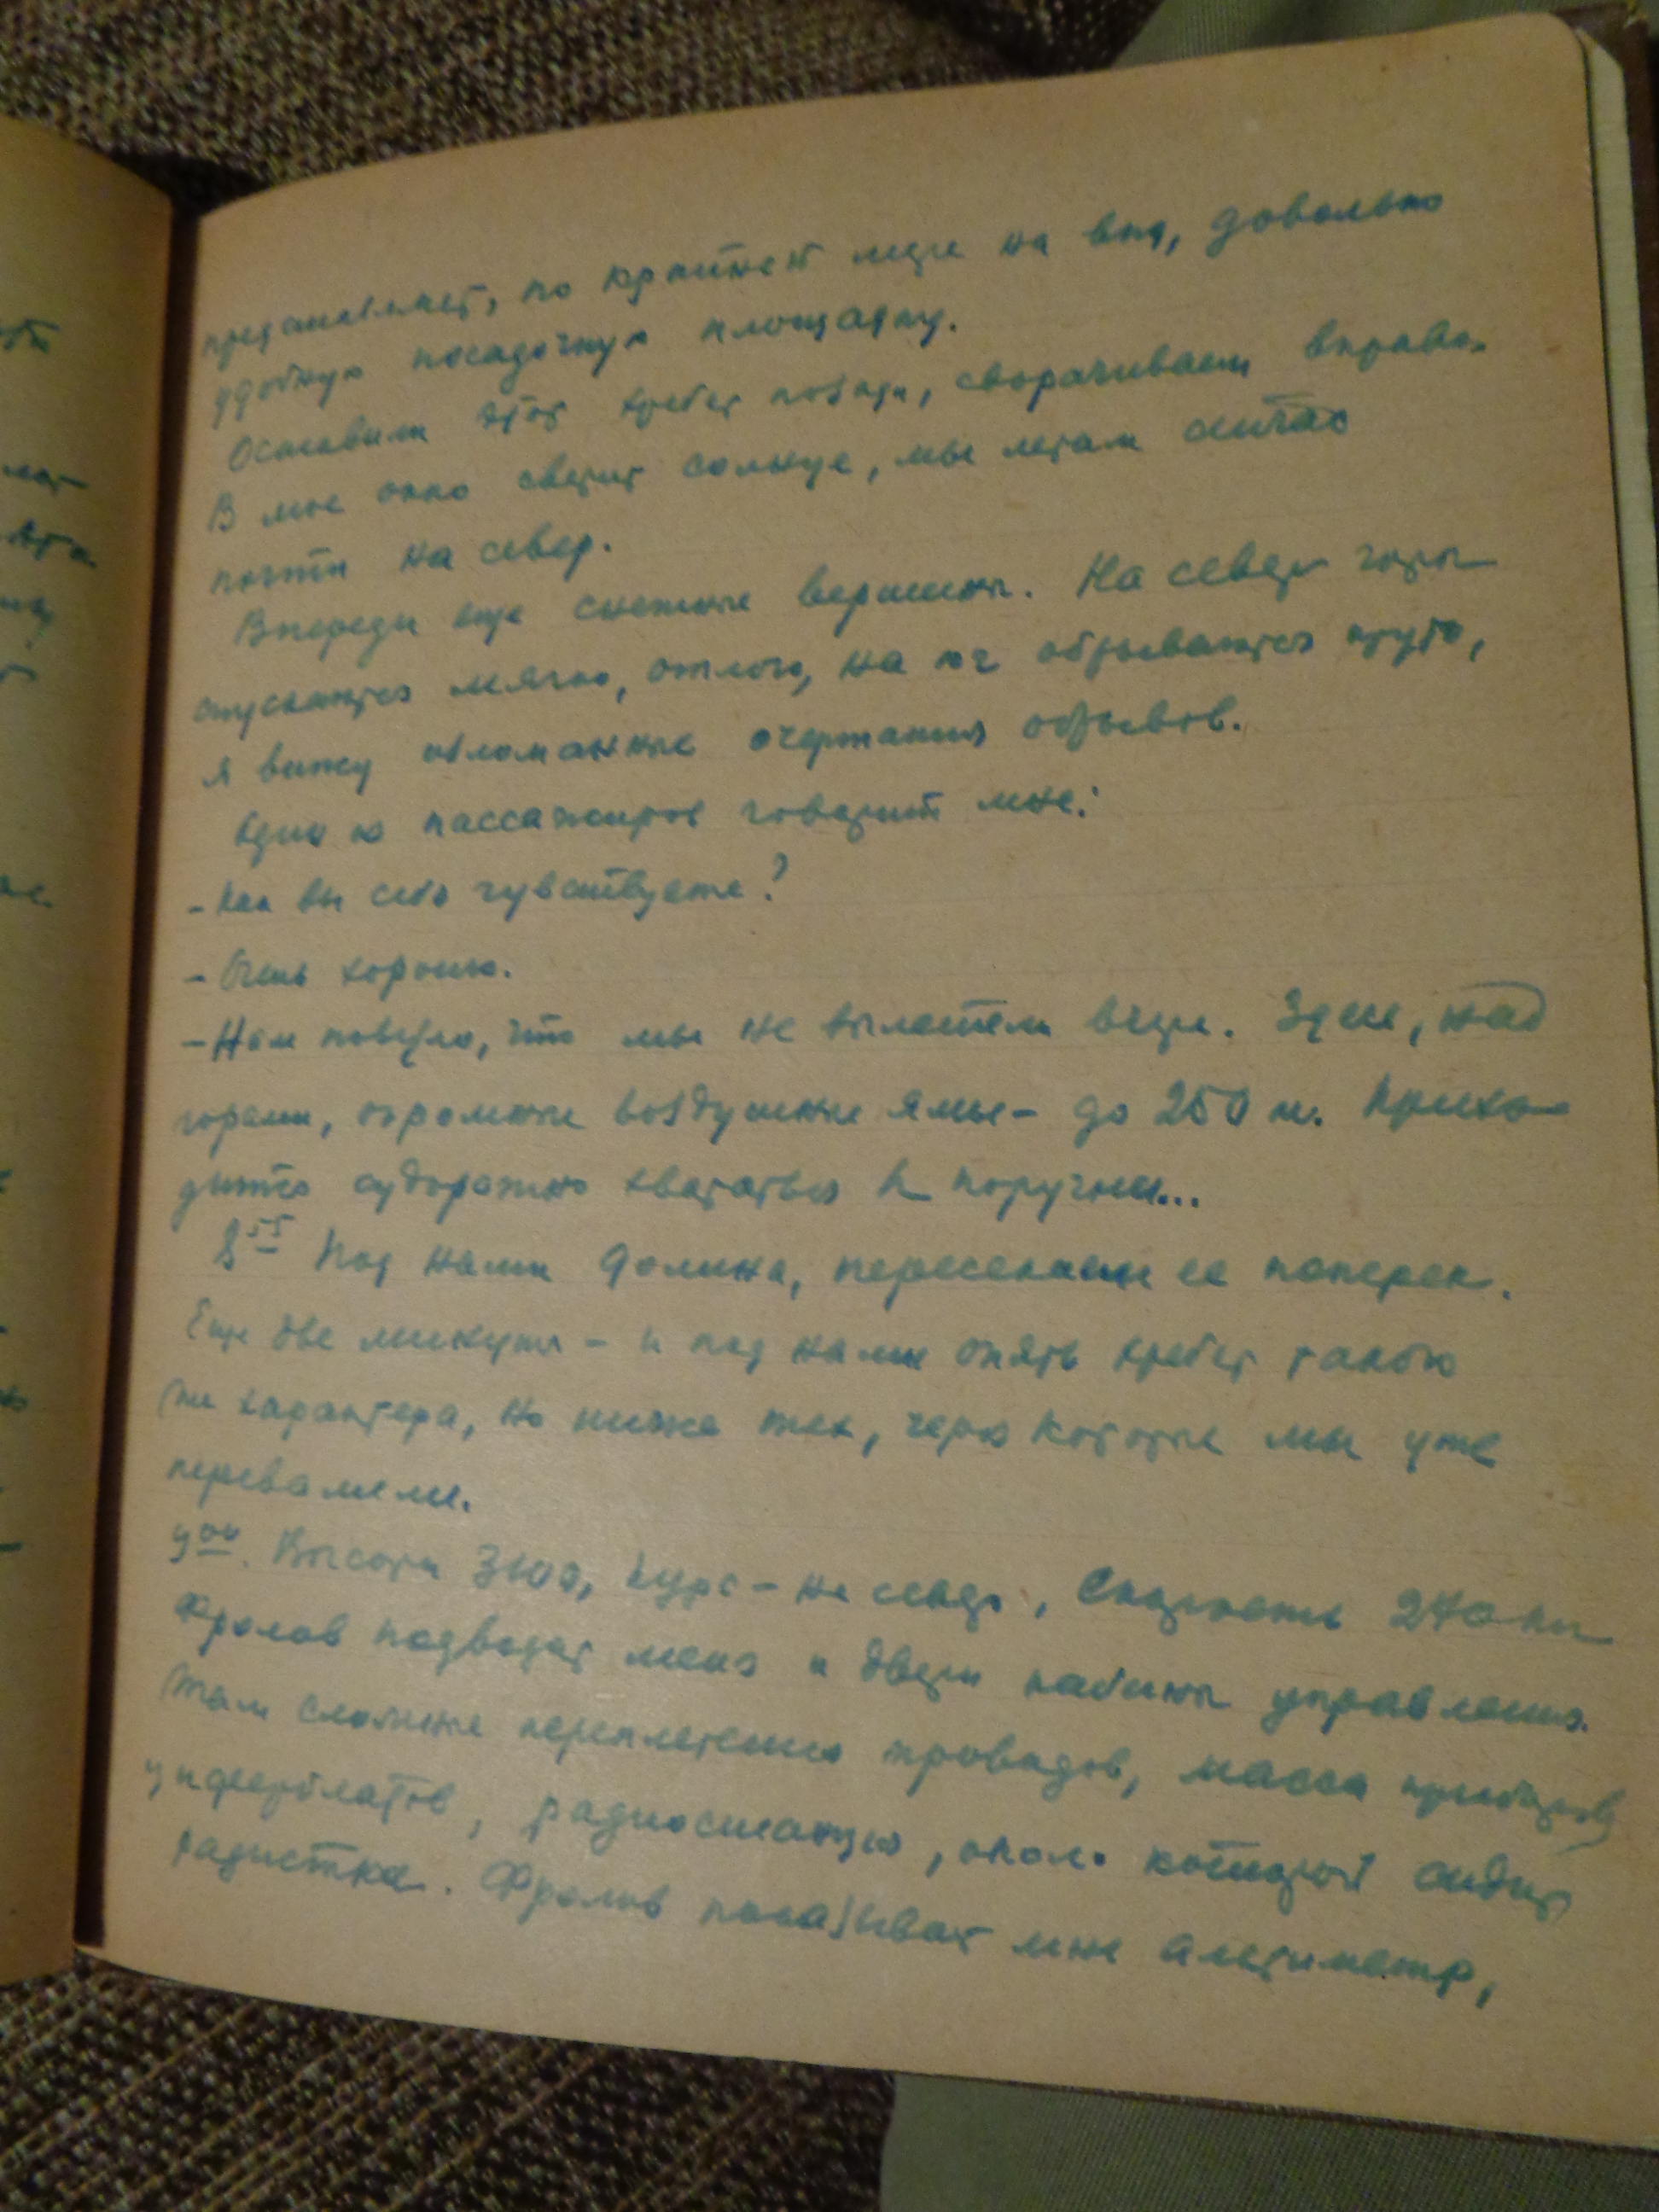 представляет, по крайней мере на вид, довольно
удобную посадочную площадку.
Оставили этот хребет позади, сворачиваем вправо.
В мое окно светит солнце, мы летим сейчас
почти на север.
Впереди еще снежные вершины. На север горы
спускаются мягко, отлого, на юг обрываются круто,
я вижу изломанные очертания обрывов.
Один из пассажиров говорит мне:
- Как вы себя чувствуете?
- Очень хорошо.
- Нам повезло, что мы не вылетели вчера. Здесь, над
горами, огромные воздушные ямы - до 250 м. Прихо-
дится судорожно хвататься за поручни...
8 55 Под нами долина, пересекаем ее поперек.
Еще две минуты - и под нами опять хребет такого
же характера, но ниже тех, через которые мы уже
перевалили.
9 00. Высота курс - на север, скорость 270 км
Фролов подводит меня к двери кабины управления.
Там сложные переплетения проводов, масса приборов,
циферблатов, радиостанция, около которой сидит
радистка. Фролов показывает мне альтиметр,